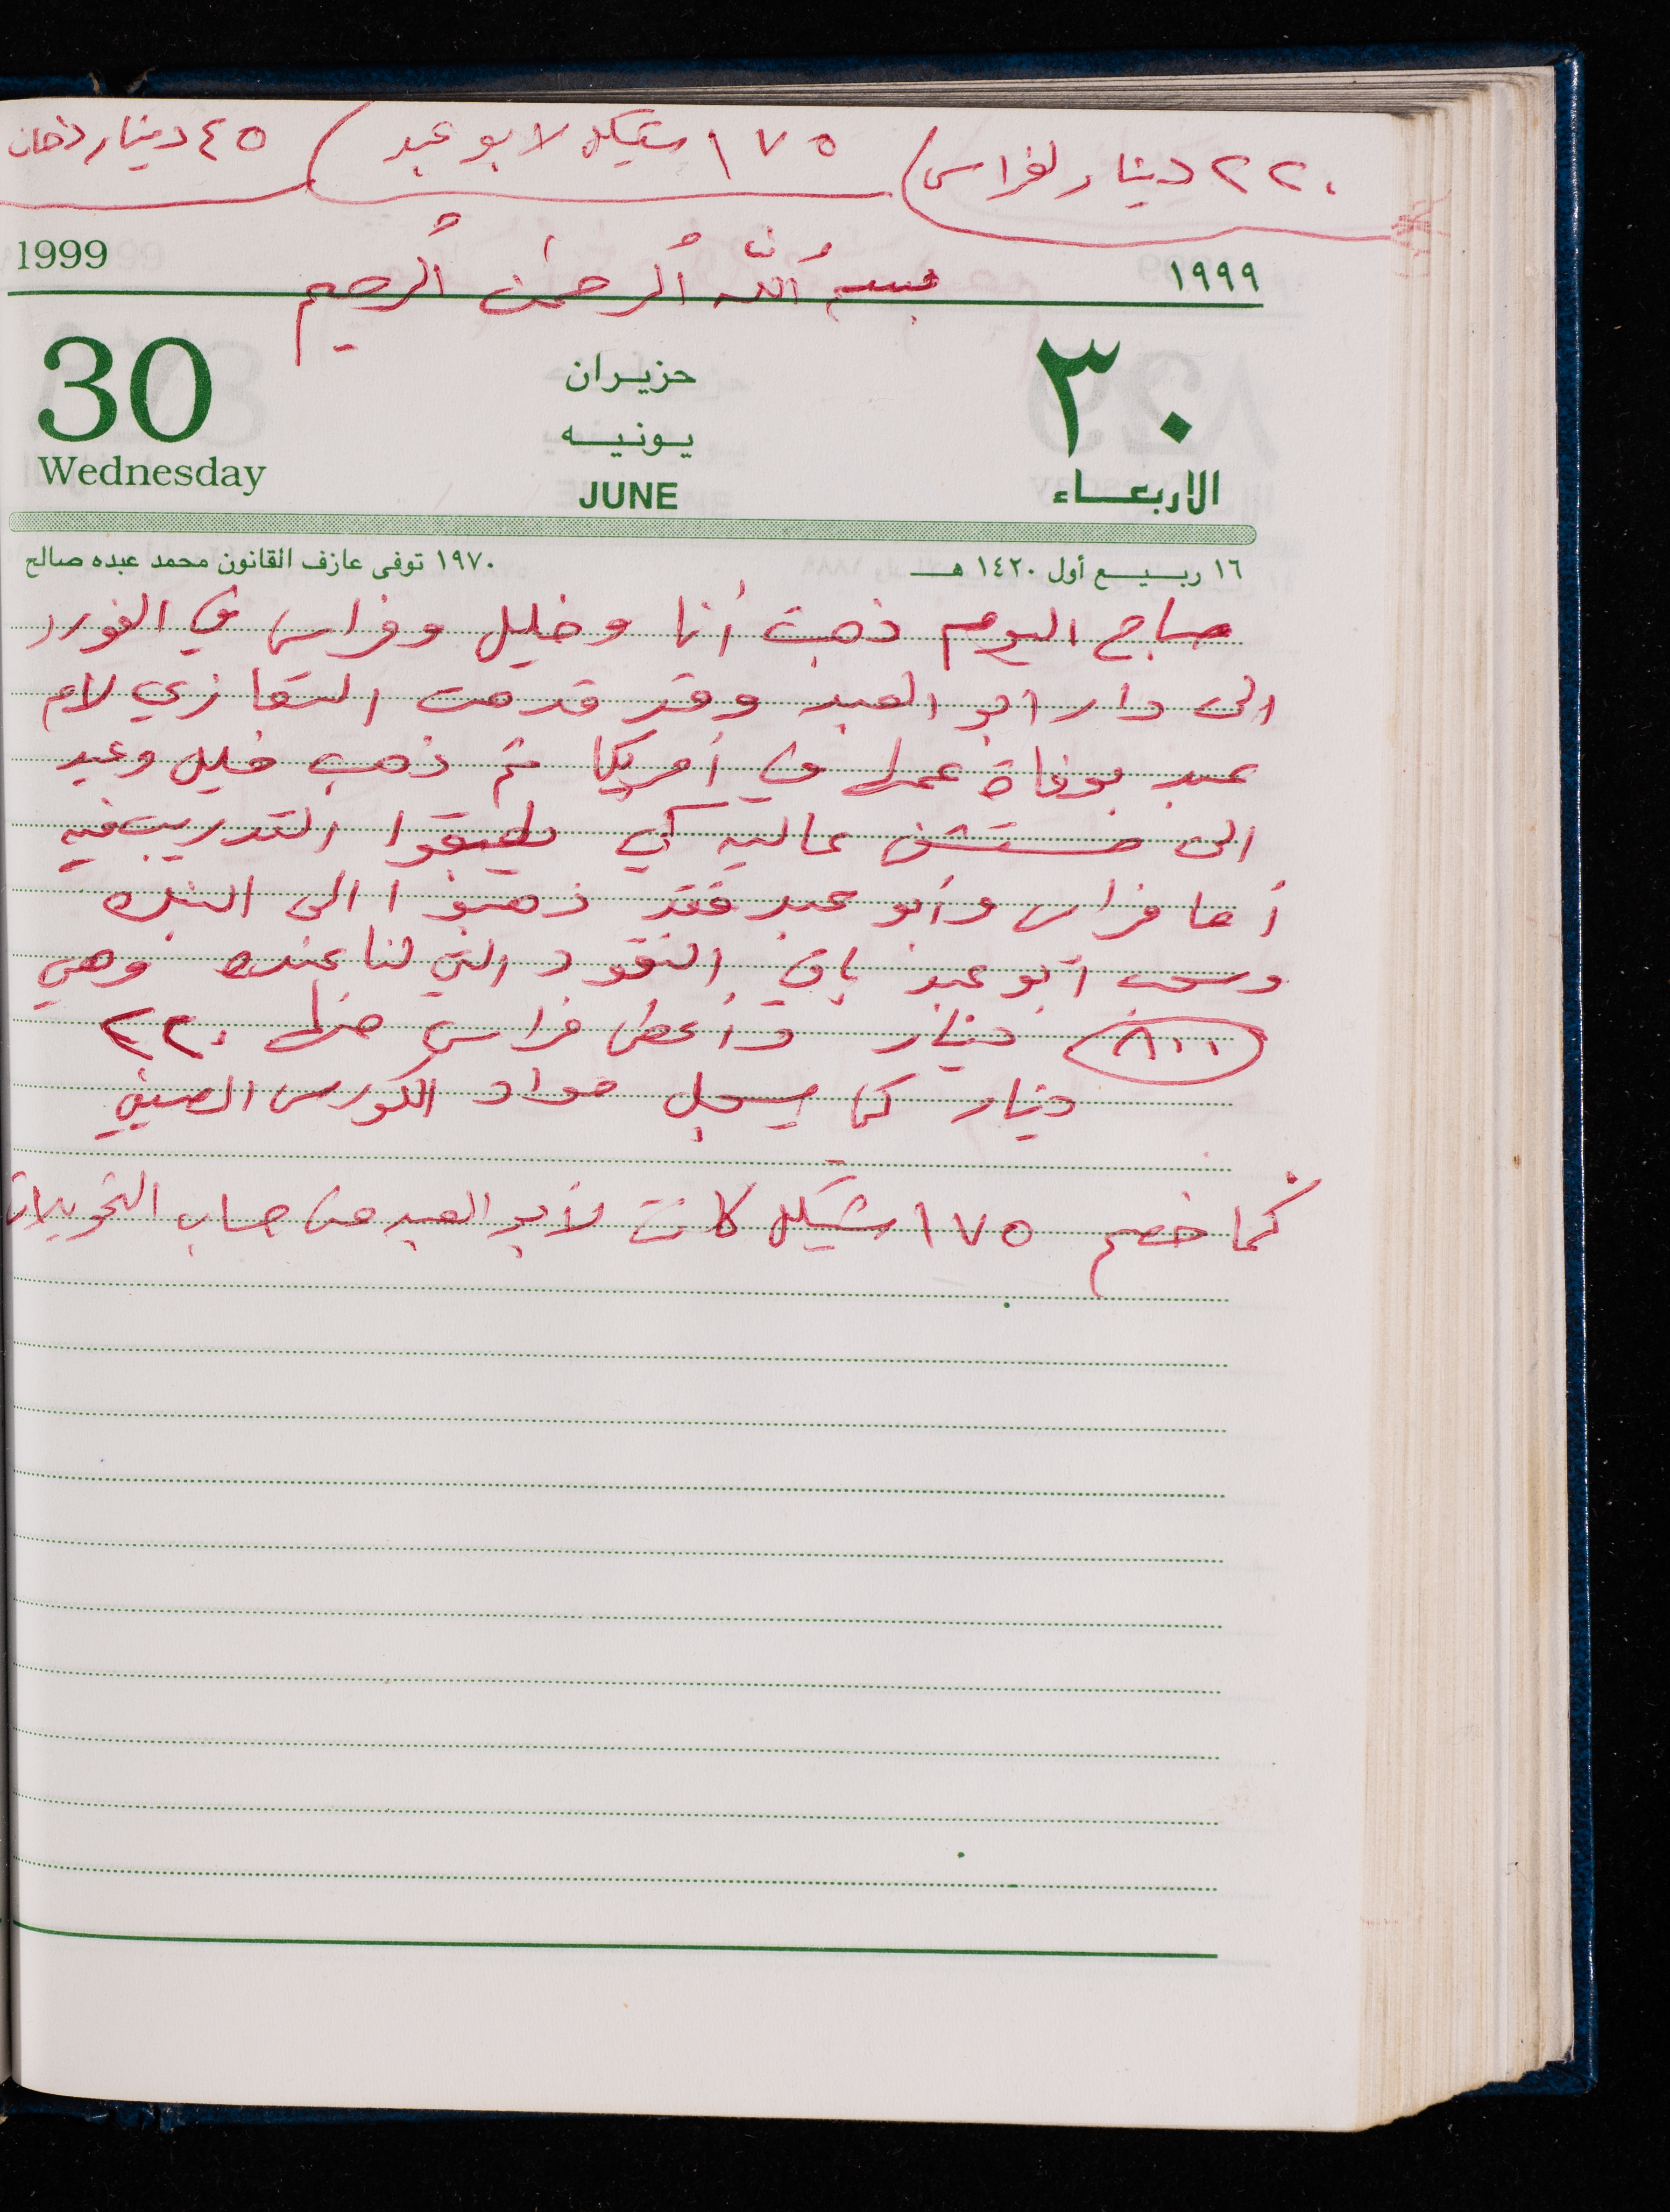 ٢٢٠ دينار لفراس / ١٧٥ شيكل لابو عبد / ٤٥ دينار دخان
1999 ١٩٩٩
بسم الله الرحمن الرحيم
30 ٣٠
حزيران
يونيه
Wednesday JUNE الاربعاء
١٦ ربيع أول ١٤٢٠ هـ ١٩٧٠ توفى عازف القانون محمد عبده صالح
صباح اليوم ذهبت أنا وخليل وفراس في الفورد
الى دار ابو العبد وقد قدمت التعازي لام
عبد بوفاة عمها في أمريكا ثم ذهب خليل وعبد
الى مستشفى عاليه كي يطبقوا التدريب فيه
أما فراس وأبو عبد فقد ذهبوا الى البنك
وسحب ابو عبد باقي النقود التي لنا عنده وهي
٨٠٠ دينار وأعطى فراس منها ٢٢٠
دينار كي يسجل مواد الكورس الصيفي
كما خصم ١٧٥ شيكل كانت لأبو العبد من حساب التحويلات